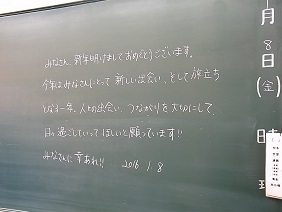 みなさん、新年明けましておめでとうございます。
今年はみなさんにとって新しい出会い、そして旅立ち
となる一年。人との出会い、つながりを大切にして、
日々過ごしていってほしいと願っています!!
みなさんに幸あれ!! 2016.1.8
月
8
日
(金)